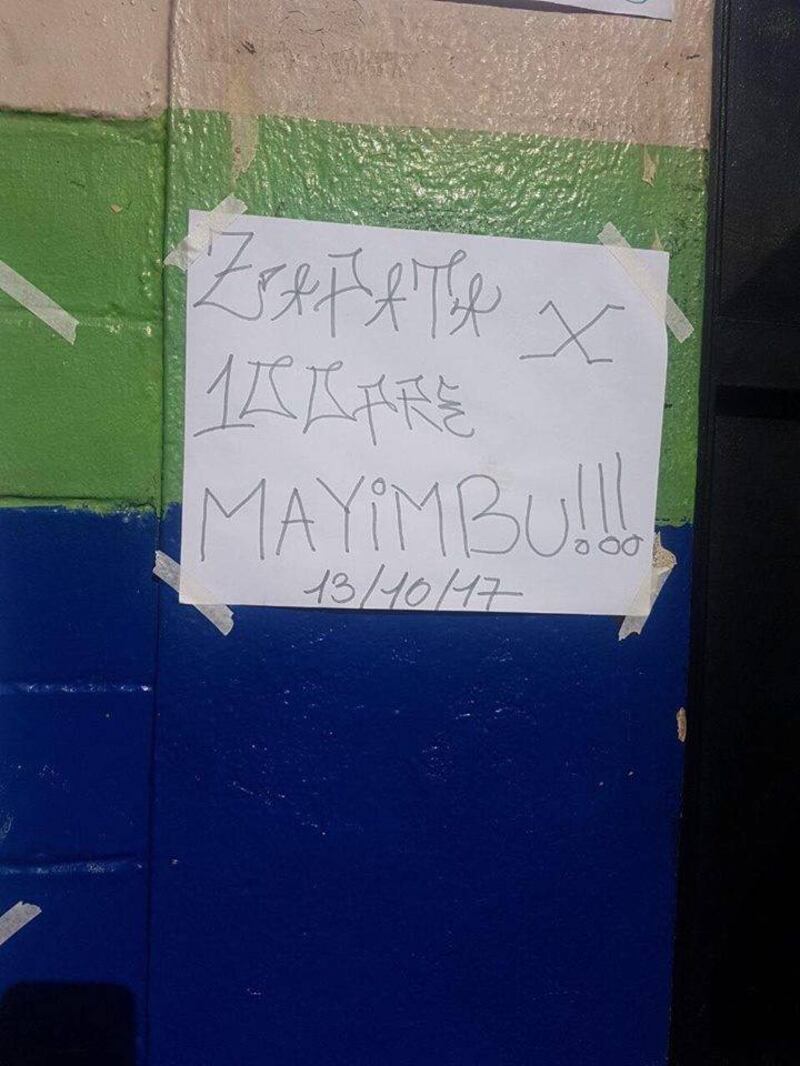 ZAPATA X
100PRE
MAYiMBU!!!
13/10/17